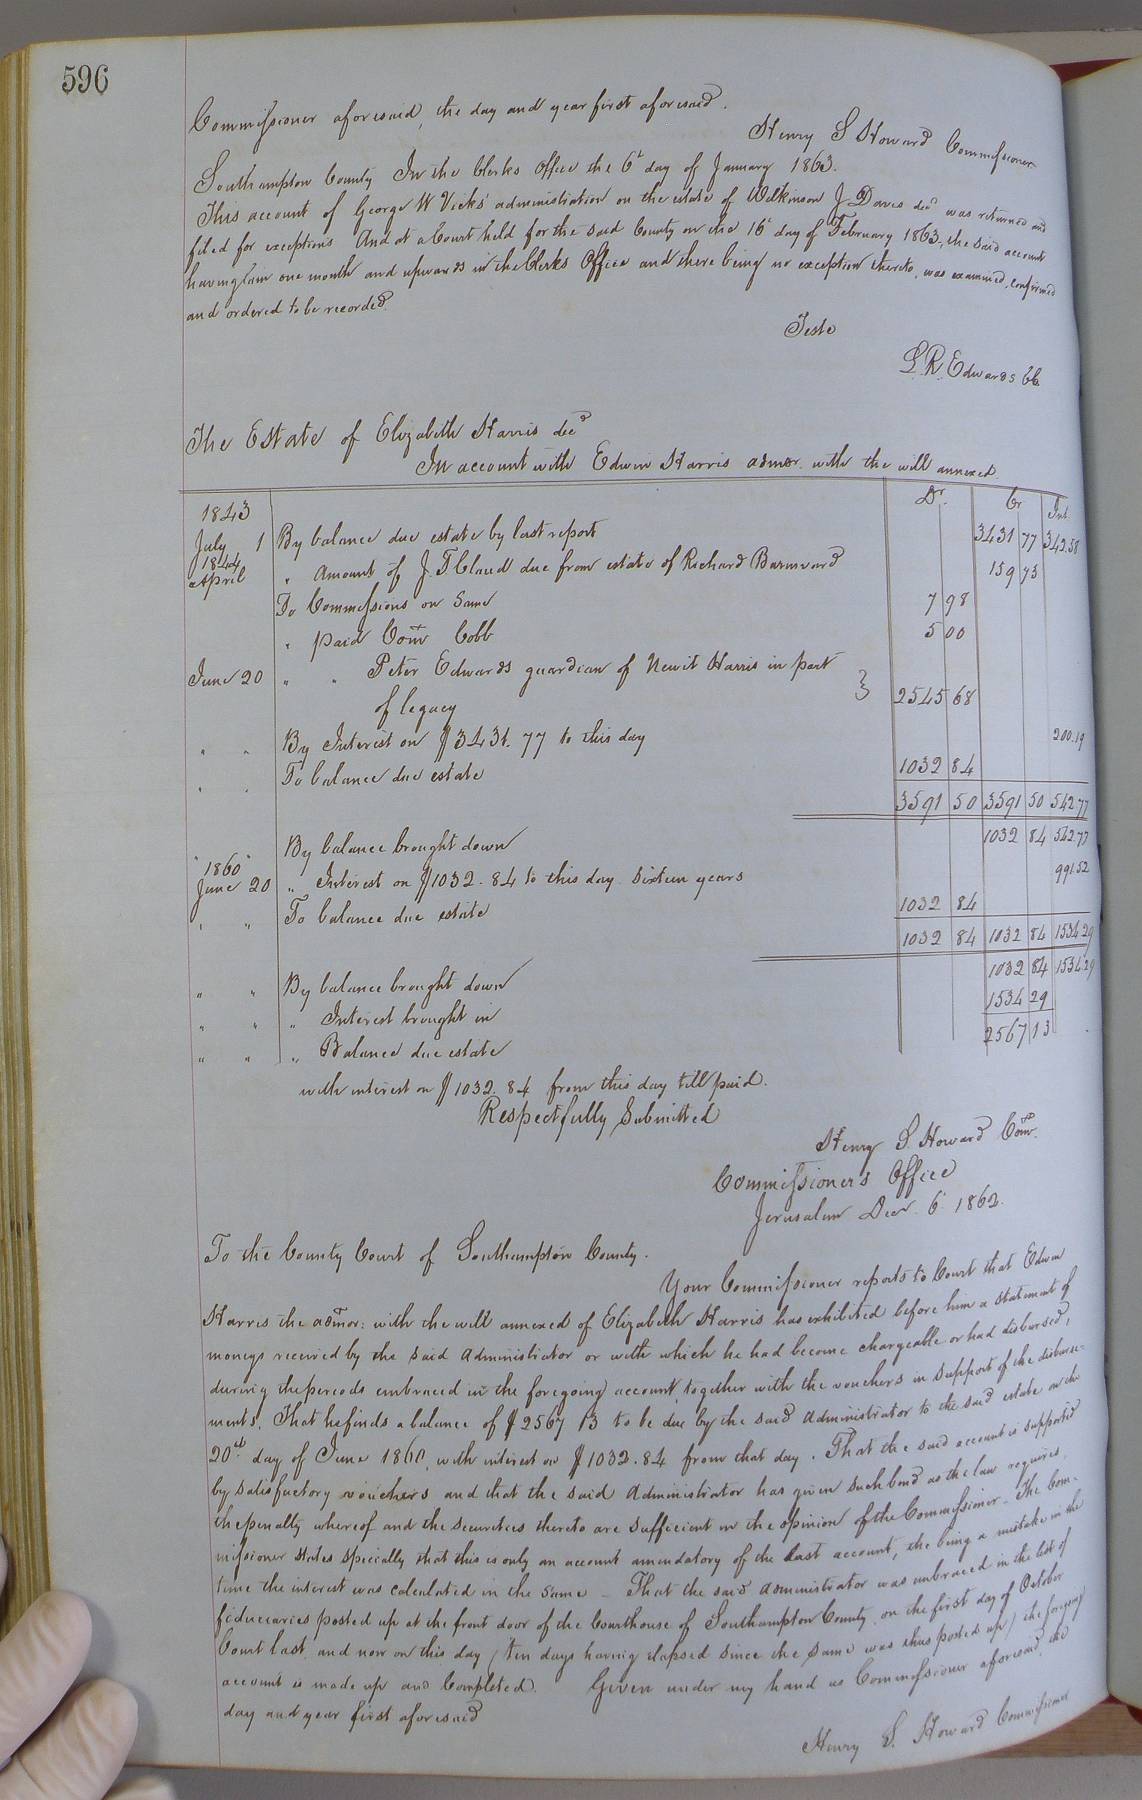 596
Commissioner aforesaid, the day and year first aforesaid.
Henry S Howard Commissioner
Southampton County In the Clerks Office the 6th day of January 1863.
This account of George W Vicks' administration on the estate of Wilkinson J Daves decd was returned and
filed for exceptions And at a Court held for the said County on the 16th day of February 1863, the said account
having lain one month and upwards in the Clerks Office and there being no exception thereto, was examined, confirmed
and ordered to be recorded.
Teste
L. R. Edwards CC
The Estate of Elizabeth Harris decd
In account with Edwin Harris admor. with the will annexed.
Dr. Cr Int.
1843
July 1 By balance due estate by last report 3431 77 342.58
1844
April " Amount of J. T. Claud due from estate of Richard Barnward 159 73
To Commissions on Same 7 98
" paid Comr Cobb 5 00
June 20 " " Peter Edwards guardian of Newit Harris in part
of legacy } 2545 68
" " By Interest on $3431.77 to this day 200.19
" " To balance due estate 1032 84
3591 50 3591 50 542.77
" " By balance brought down 1032 84 542.77
1860
June 20 " Interest on $1032.84 to this day Sixteen years 991.52
" " To balance due estate 1032 84
1032 84 1032 84 1534.29
" " By balance brought down 1032 84 1534.29
" " " Interest brought in 1534 29
" " " Balance due estate 2567 13
with interest on $1032.84 from this day till paid.
Respectfully Submitted
Henry S. Howard Comr.
Commissioner's Office
Jerusalem Decr. 6th 1862.
To the County Court of Southampton County.
Your Commissioner reports to Court that Edwin
Harris the admor: with the will annexed of Elizabeth Harris has exhibited before him a statement of
moneys received by the said Administrator or with which he had become chargeable or had disbursed,
during the periods embraced in the foregoing account, together with the vouchers in support of the disburse-
ments, That he finds a balance of $2567 13 to be due by the said Administrator to the said estate on the
20th day of June 1860, with interest on $1032.84 from that day. That the said account is supported
by satisfactory vouchers and that the said Administrator has given such bond as the law requires,
the penalty whereof and the securities thereto are sufficient in the opinion of the Commissioner. The Com-
missioner states specially that this is only an account amendatory of the last account, the being a mistake in the
time the interest was calculated in the same – That the said Administrator was embraced in the list of
fiduciaries posted up at the front door of the Courthouse of Southampton County, on the first day of October
Court last, and now on this day (ten days having elapsed since the same was thus posted up) the foregoing
account is made up and Completed. Given under my hand as Commissioner aforesaid, the
day and year first aforesaid
Henry S. Howard Commissioner